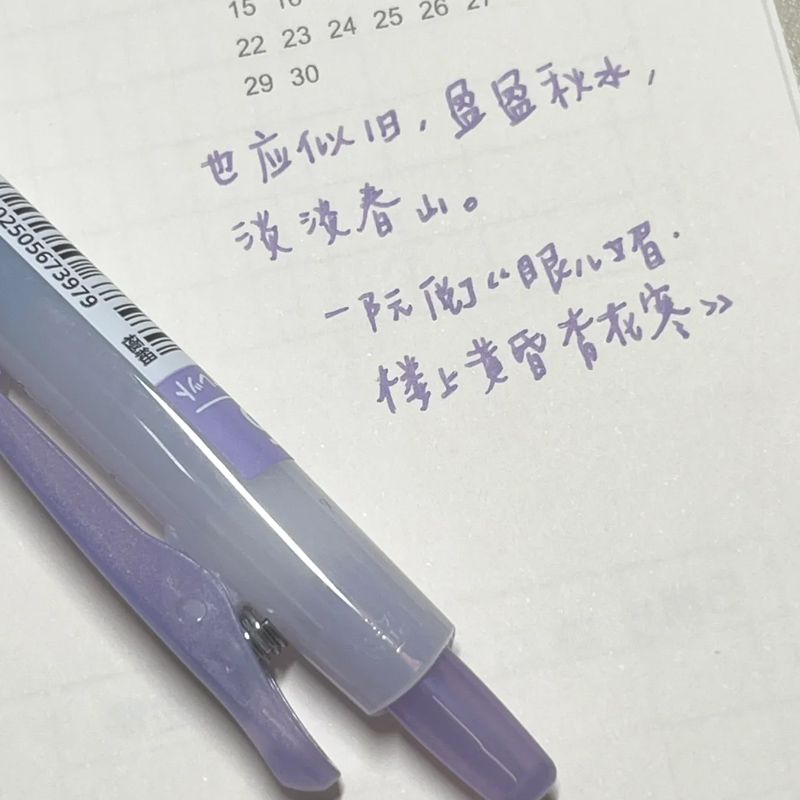 15 16
22 23 24 25 26 27
29 30
也应似旧，盈盈秋水，
淡淡春山。
—阮阅《眼儿媚·
楼上黄昏杏花寒》
02505673979
極細
レット